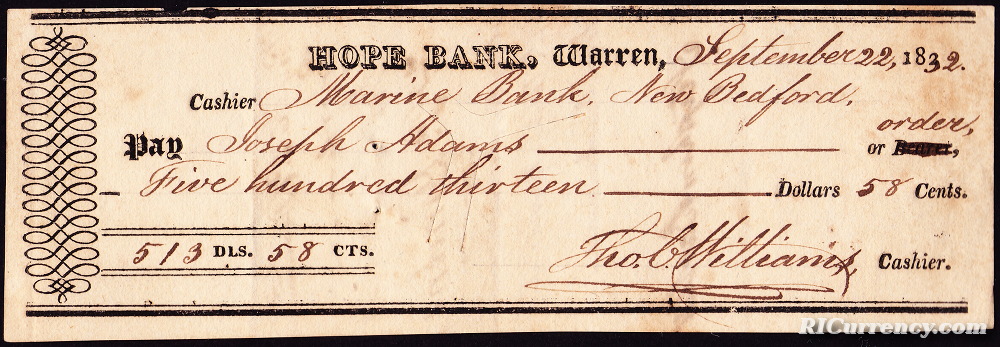 HOPE BANK, Warren, September 22, 1832.
Cashier Marine Bank, New Bedford,
order,
Pay Joseph Adams or Bearer,
Five hundred thirteen Dollars 58 Cents.
513 DLS. 58 CTS.
Tho. C. Williams, Cashier.
RICurrency.com